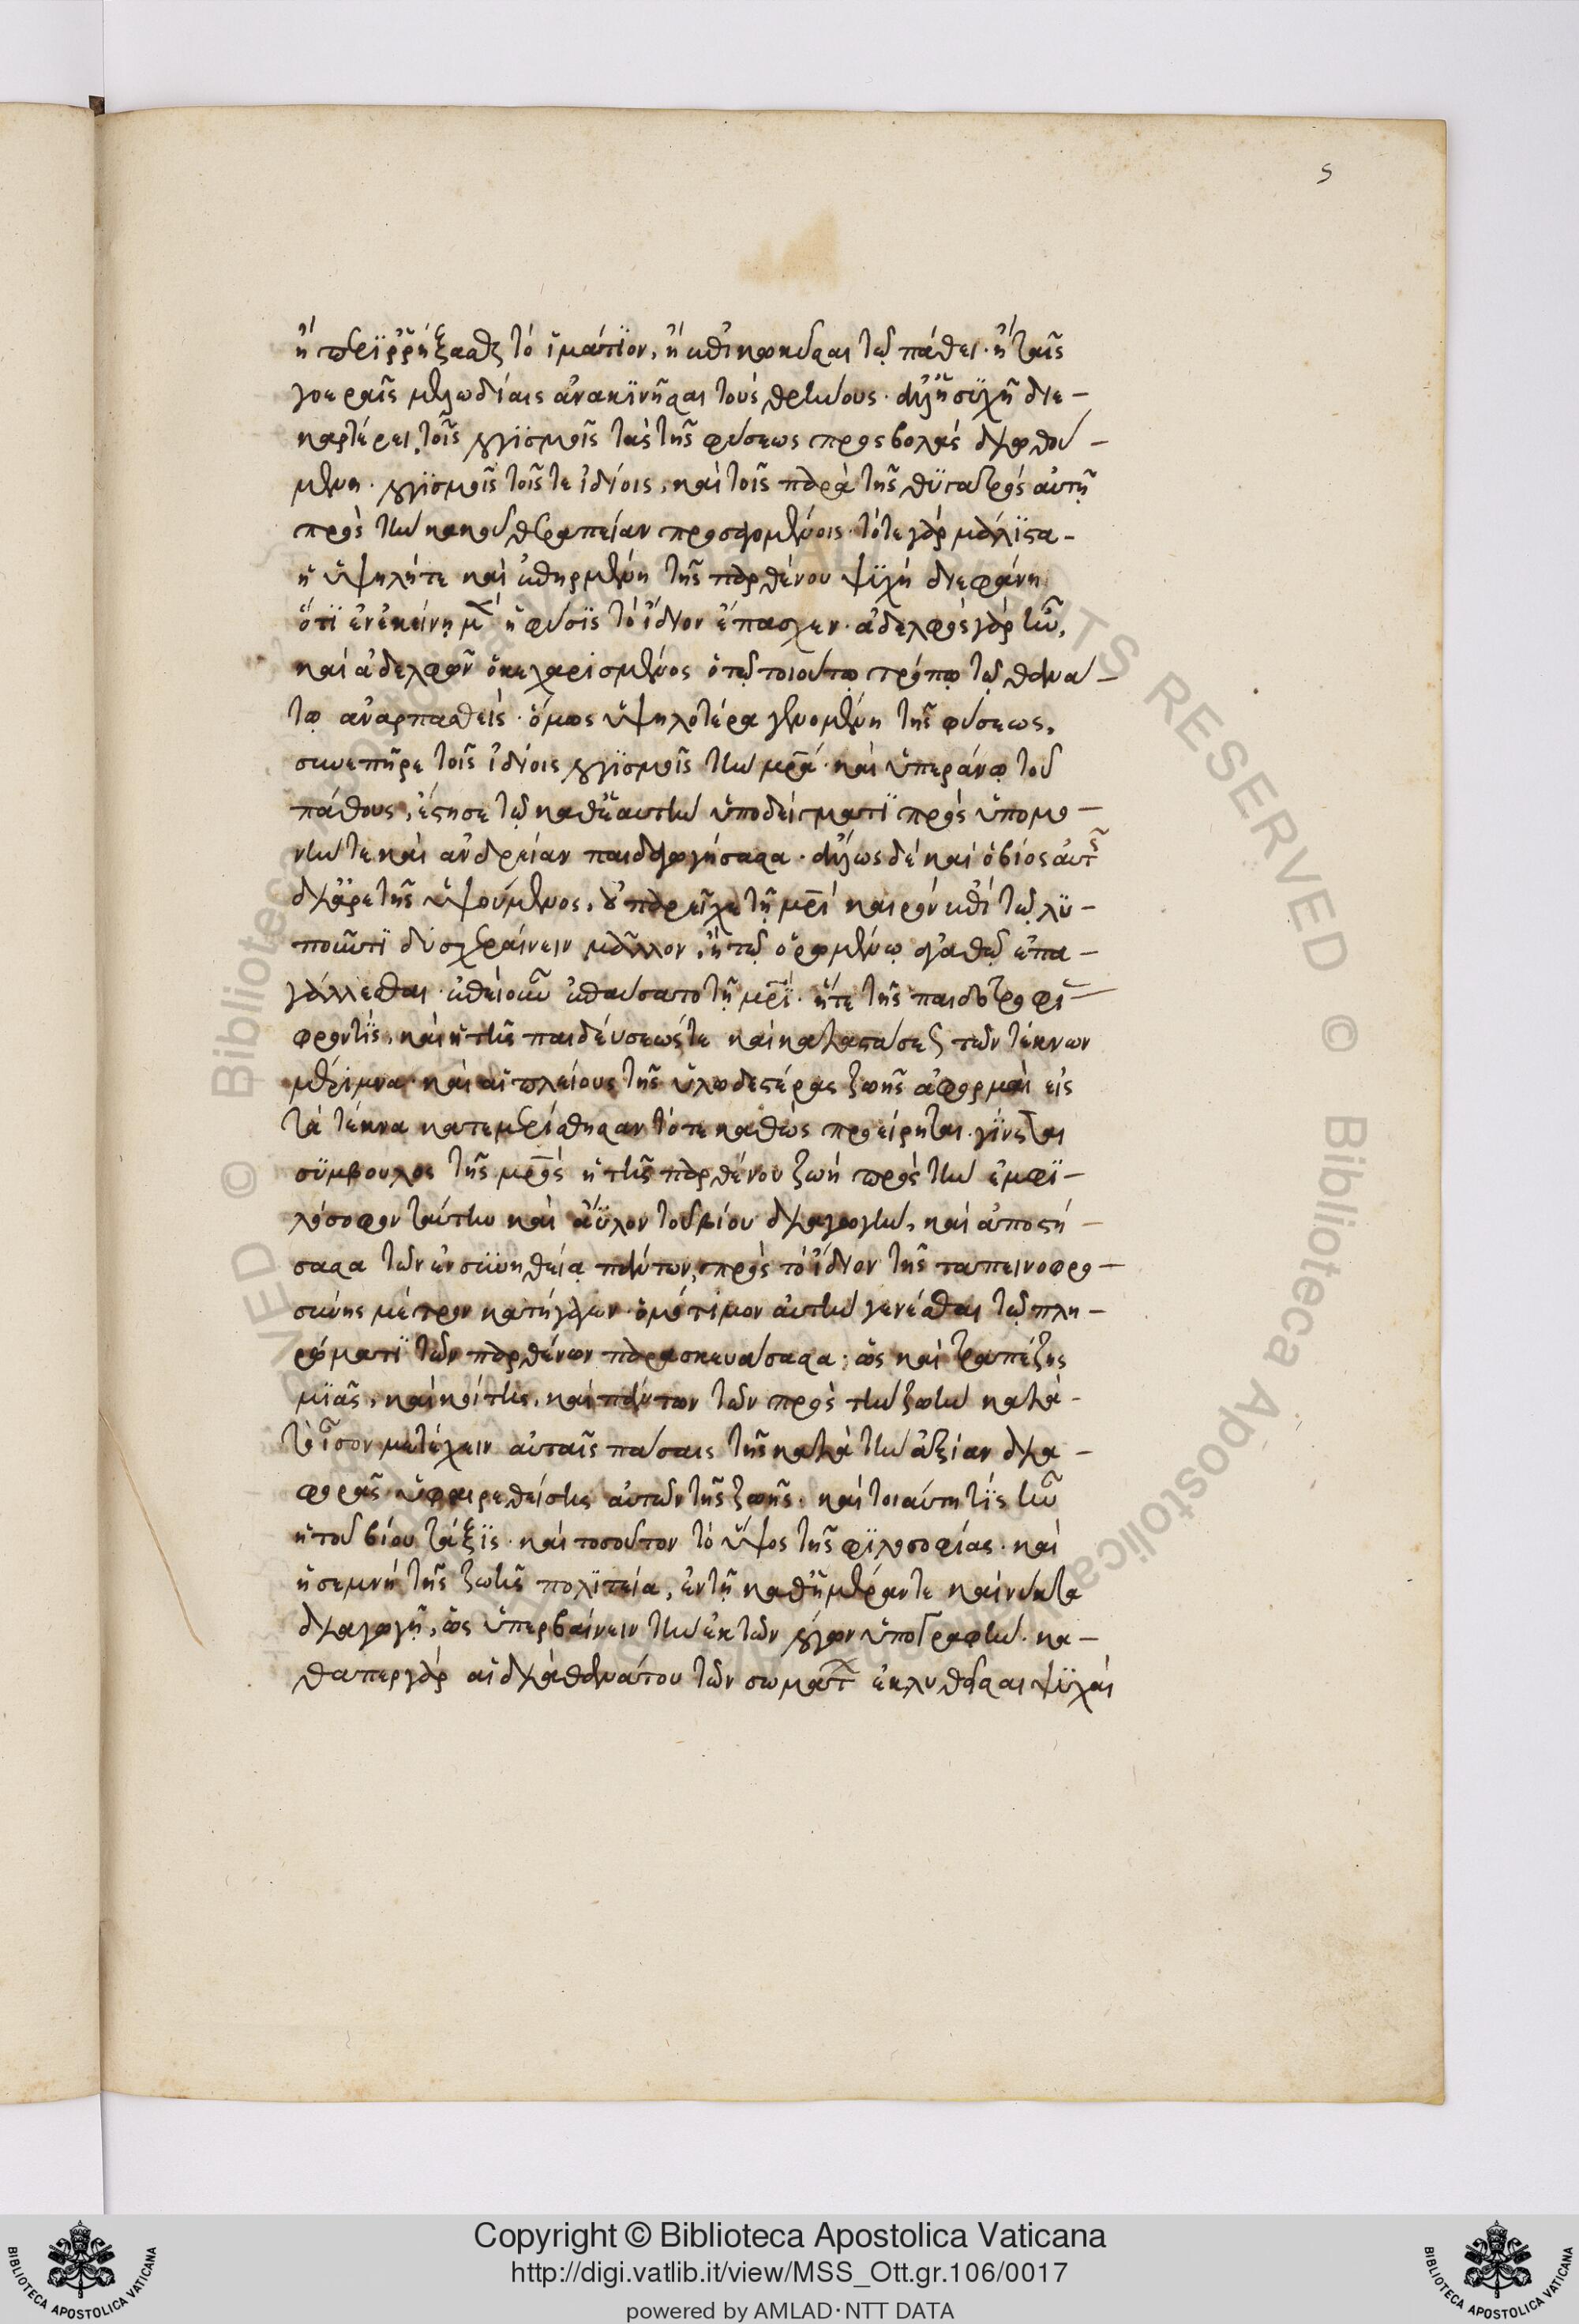 ς
ἢ περϊρρήξασθαι τὸ ἱμάτϊον, ἢ ἐπικωκύσαι τῷ πάθει· ἢ ταῖς
γοεραῖς μελωδίαις ἀνακϊνῆσαι τοὺς θρήνους· ἀλλ' ἡσϋχῆ διε-
καρτέρει, τοῖς λογϊσμοῖς τὰς τῆς φύσεως προσβολὰς διωθου-
μένη· λογϊσμοῖς τοῖς τε ἰδίοις, καὶ τοῖς παρὰ τῆς θϋγατρὸς αὐτῇ
πρὸς τὴν κακοῦ θεραπείαν προσαγομένοις· τότε γὰρ μάλϊστα-
ἡ ὑψηλή τε καὶ ἐπηρμένη τῆς παρθένου ψϋχὴ διεφάνη
ὅτϊ ἐν ἐκείνῃ μὲν ἡ φύσϊς τὸ ἴδιον ἔπασχεν· ἀδελφὸς γὰρ ἦν,
καὶ ἀδελφῶν ὁ κεχαρισμένος ὁ τῷ τοιούτῳ τρόπῳ τῷ θανά-
τῳ ἀναρπασθείς· ὅμως ὑψηλοτέρα γενομένη τῆς φύσεως,
συνεπῆρε τοῖς ἰδίοις λογϊσμοῖς τὴν μρα· καὶ ὑπεράνω τοῦ
πάθους, ἔστησε τῷ καθ' ἑαυτὴν ὑποδείγματϊ πρὸς ὑπομο-
νήν τε καὶ ἀνδρείαν παιδαγωγήσασα· ἄλλως δὲ καὶ ὁ βίος αὐτῆς
δι' ἀρετῆς ὑψούμενος, οὐ παρεῖχε τῇ μρι καιρὸν ἐπὶ τῷ λϋ-
ποῦντϊ δυσχεραίνειν μᾶλλον, ἢ τῷ ὁρωμένῳ ἀγαθῷ ἐπα-
γάλλεσθαι· ἐπεὶ οὖν ἐπαύσατο τῇ μρϊ· ἥ τε τῆς παιδοτροφί-
φροντϊς, καὶ ἡ τῆς παιδεύσεώς τε καὶ καταστάσεως τῶν τέκνων
μέριμνα· καὶ αἱ πλείους τῆς ὑλωδεστέρας ζωῆς ἀφορμαὶ εἰς
τὰ τέκνα κατεμερίσθησαν τότε καθὼς προείρηται· γίνεται
σύμβουλος τῆς μρος ἡ τῆς παρθένου ζωὴ πρὸς τὴν ἐμφϊ-
λόσοφον ταύτην καὶ ἄϋλον τοῦ βίου διαγωγήν, καὶ ἀποστή-
σασα τῶν ἐν συνηθείᾳ πάντων, πρὸς τὸ ἴδιον τῆς ταπεινοφρο-
σύνης μέτρον κατήγαγεν· ὁμότιμον αὐτὴν γενέσθαι τῷ πλη-
ρώματϊ τῶν παρθένων παρασκευάσασα· ὡς καὶ τραπέζης
μϊᾶς, καὶ κοίτης, καὶ πάντων τῶν πρὸς τὴν ζωὴν κατὰ-
τὸ ἶσον μετέχειν αὐταῖς πάσαις τῆς κατὰ τὴν ἀξίαν δια-
φορᾶς ὑφαιρεθείσης αὐτῶν τῆς ζωῆς· καὶ τοιαύτη τϊς ἦν
ἡ τοῦ βίου τάξϊς· καὶ τοσοῦτον τὸ ὕψος τῆς φϊλοσοφίας· καὶ
ἡ σεμνὴ τῆς ζωῆς πολϊτεία, ἐν τῇ καθ' ἡμέραν τε καὶ νύκτα
διαγωγῇ, ὡς ὑπερβαίνειν τὴν ἐκ τῶν λόγων ὑπογραφήν· κα-
θάπερ γὰρ αἱ διὰ θανάτου τῶν σωμάτων ἐκλυθεῖσαι ψϋχαὶ
Copyright © Biblioteca Apostolica Vaticana
http://digi.vatlib.it/view/MSS_Ott.gr.106/0017
powered by AMLAD·NTT DATA